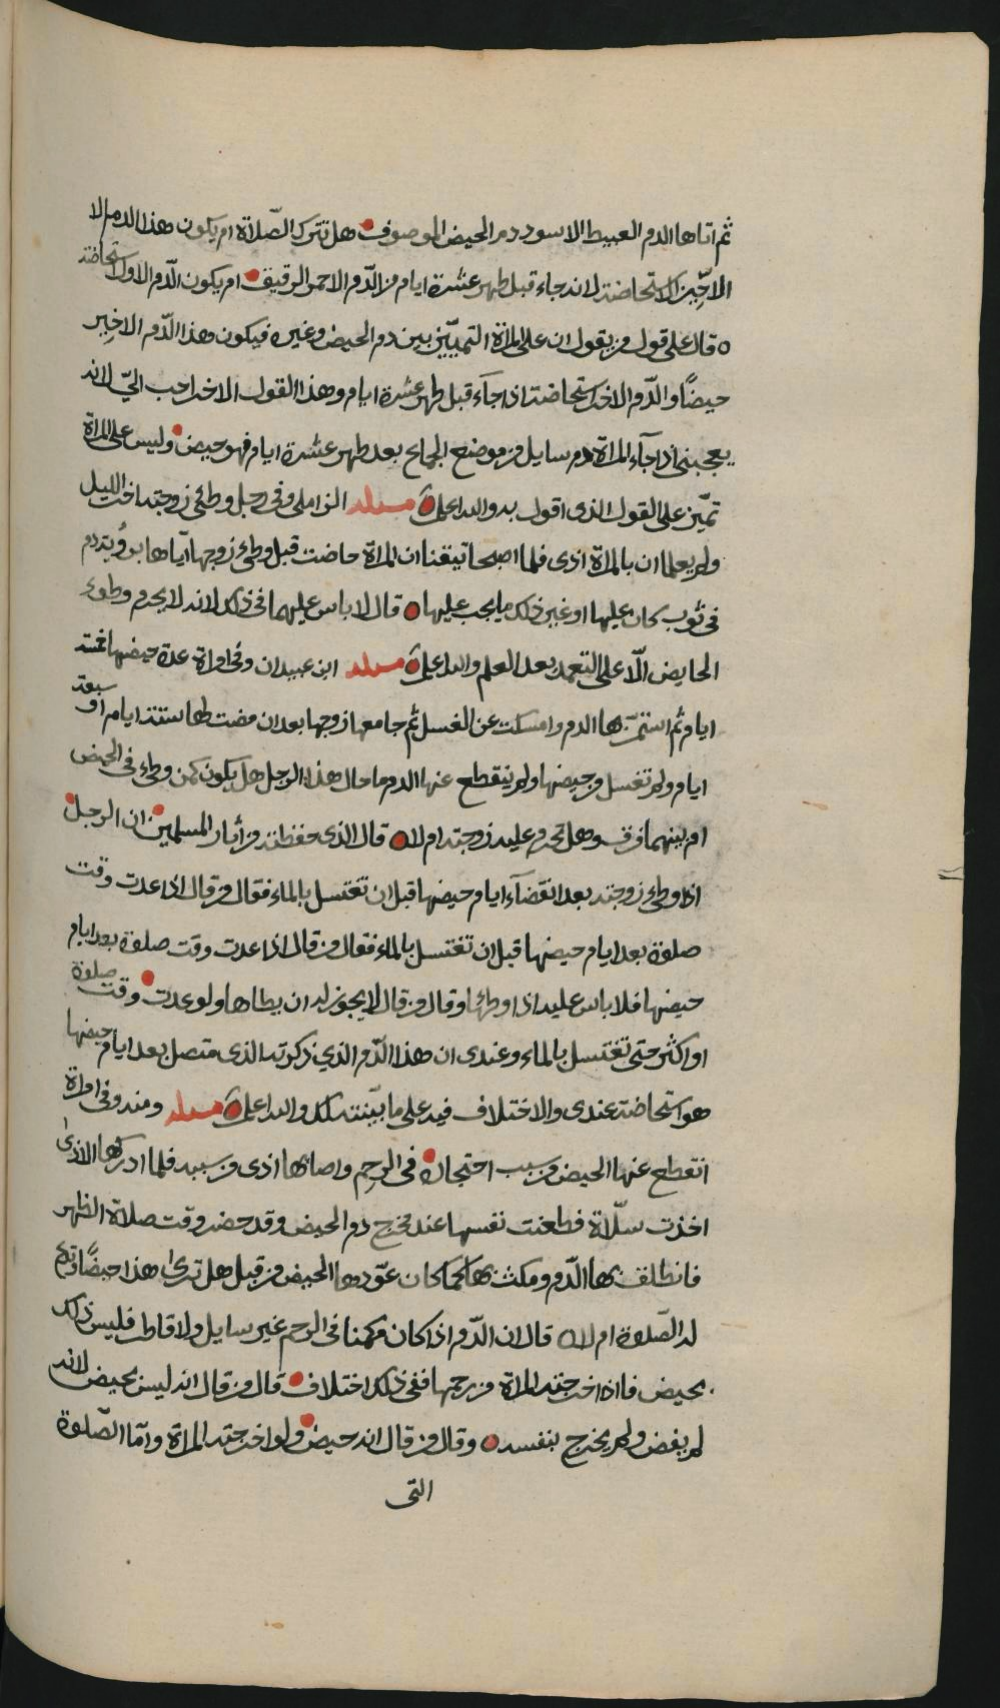 ثم اتاها الدم العبيط الاسود دم الحيض الموصوف هل تترك الصّلاة ام يكون هذا الدم الا
الاخير استحاضة لانه جاء قبل طهر عشرة ايام من الدّم الاحمر الرقيق ام يكون الدّم الاول استحاضة
قال على قول من يقول ان على المراة التمييز بين دم الحيض وغيره فيكون هذا الدّم الاخير
حيضًا والدّم الاخر استحاضة اذا جآء قبل طهر عشرة ايام وهذا القول الاخر احب اليّ لانه
يعجبني اذا جآء المراة دم سايل من موضع الجماع بعد طهر عشرة ايام فهو حيض وليس على المراة
تميّز على القول الذى اقول به والله اعلم مسئلة الزاملي وفى رجل وطئ زوجته اخر الليل
ولم يعلما ان بالمراة اذى فلما اصبحا تيقنا ان المراة حاضت قبل وطئ زوجها اياها برؤية دم
فى ثوب كان عليها او غير ذلك ما يجب عليها قال لا باس عليهما فى ذلك لانه لا يحرم وطوء
الحايض الّا على التعمد بعد العلم والله اعلم مسئلة ابن عبيدان وفى امراة عدة حيضها خمسة
ايام ثم استمرّ بها الدم وامسكت عن الغسل ثم جامعها زوجها بعد ان مضت لها ستة ايام او سبعة
ايام ولم تغسل من حيضها ولم ينقطع عنها الدم ما حال هذا الرجل هل يكون كمن وطئ فى الحيض
ام بينهما فرق وهل تحرم عليه زوجته ام لا قال الذى حفظته من آثار المسلمين ان الرجل
اذا وطئ زوجته بعد انقضآء ايام حيضها قبل ان تغتسل بالماء فقال من قال اذا عدت وقت
صلوة بعد ايام حيضها قبل ان تغتسل بالماء فقال من قال اذا عدت وقت صلوة بعد ايام
حيضها فلا باس عليه اذا وطئها وقال من قال لا يجوز له ان يطاها ولو عدت وقت صلوة
او اكثر حتى تغتسل بالماء وعندى ان هذا الدّم الذي ذكرته الذى متصل بعد ايام حيضها
هو استحاضة عندى والاختلاف فيه على ما بيّنته لك والله اعلم مسئلة ومنه وفى امراة
انقطع عنها الحيض من سبب احتجان فى الرحم واصابها اذى من سببه فلما ادركها الاذى
اخذت سلّاة فطعنت نفسها عند مخرج دم الحيض وقد حضر وقت صلاة الظهر
فانطلق بها الدّم ومكث بها كما كان عوّدها الحيض من قبل هل ترى هذا حيضًا وتدع
له الصّلوة ام لا قال ان الدّم اذا كان مكمنا فى الرحم غير سايل ولا قاطر فليس ذلك
بحيض فاذا اخرجته المراة من رحمها ففى ذلك اختلاف قال من قال انه ليس بحيض لانه
لم يفض ولم يخرج بنفسه وقال من قال انه حيض ولو اخرجته المراة وامّا الصّلوة
التى